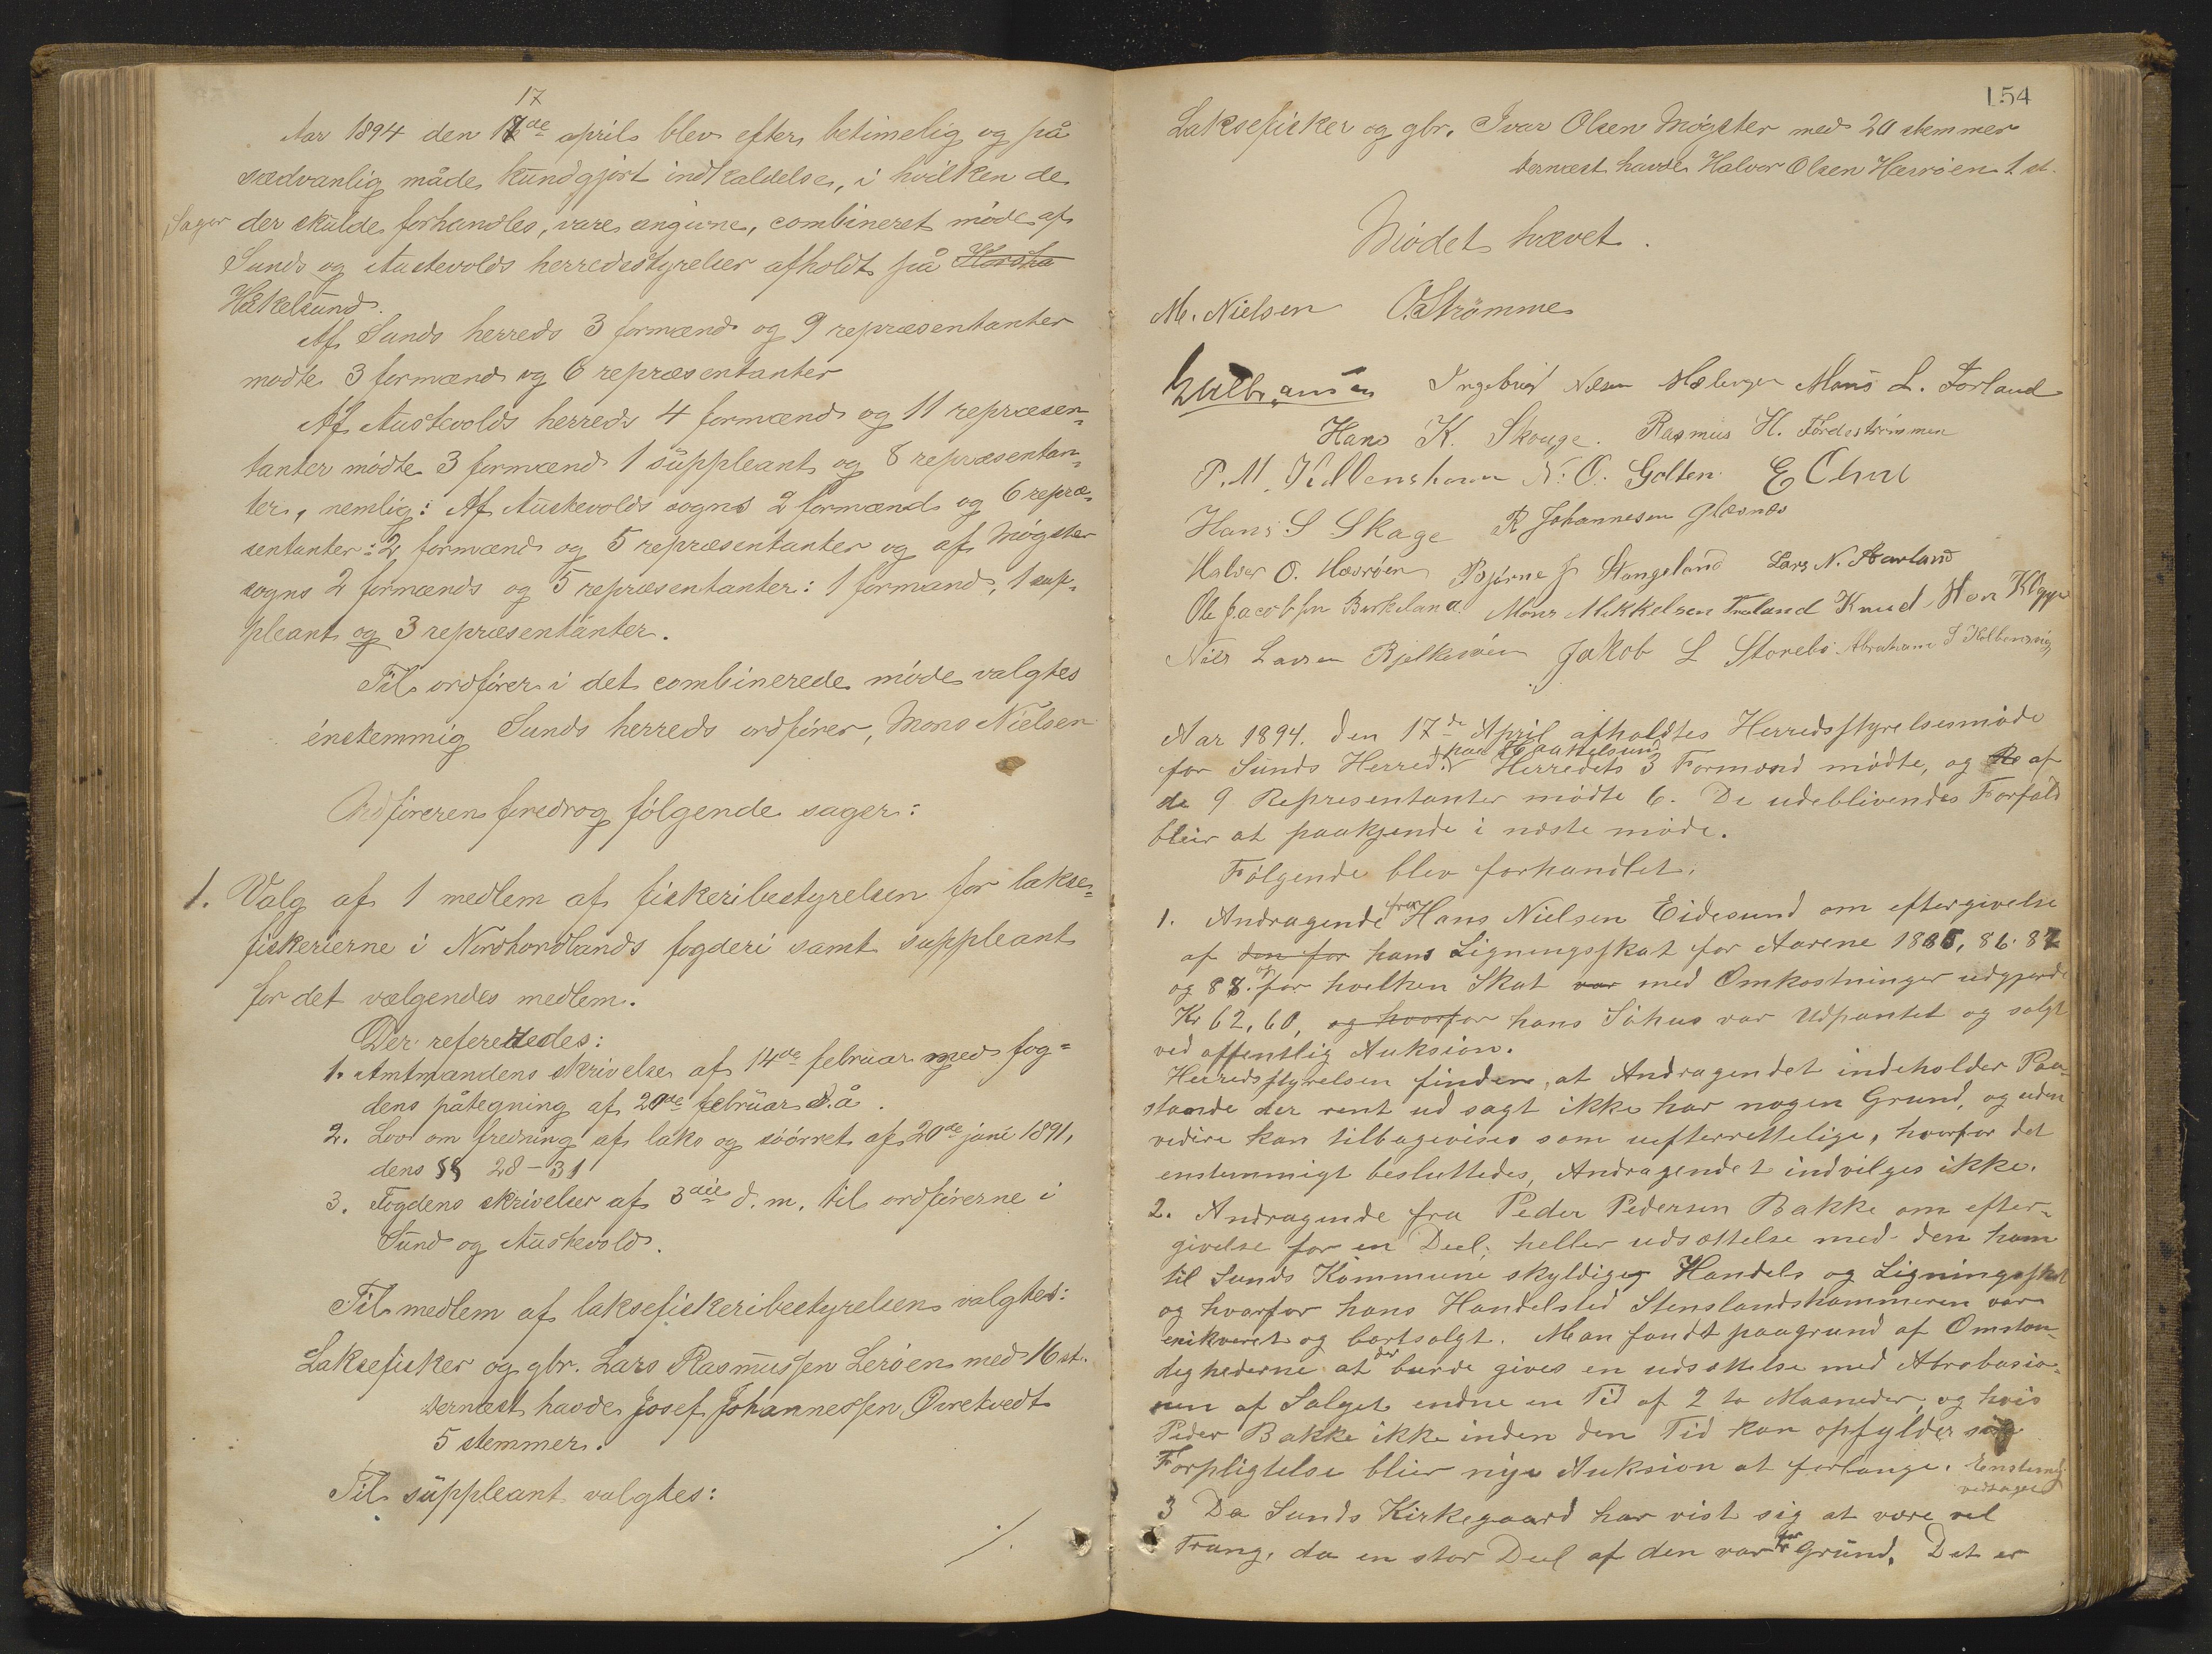 17
Aar 1894 den 17de april blev efter betimelig og på
sædvanlig måde kundgjort indkaldelse, i hvilken de
Sager der skulde forhandles, vare angivne, combineret møde af
Sunds og Austevolds herredsstyrelser afholdt på
Hækelsund.
Af Sunds herreds 3 formænd og 9 repræsentanter
mødte 3 formænd og 6 repræsentanter
Af Austevolds herreds 4 formænd og 11 repræsen-
tanter mødte 3 formænd 1 suppleant og 8 repræsentan-
ter, nemlig: Af Austevolds sogns 2 formænd og 6 repræ-
sentanter: 2 formænd og 5 repræsentanter og af Møgster
sogns 2 formænds og 5 repræsentanter: 1 formand, 1 sup-
pleant og 3 repræsentanter.
Til ordfører i det combinerede møde valgtes
énstemmig Sunds herreds ordfører, Mons Nielsen
Ordføreren foredrog følgende sager:
1. Valg af 1 medlem af fiskeribestyrelsen for lakse-
fiskerierne i Nordhordlands fogderi samt suppleant
for det vælgendes medlem.
Der refereredes:
1. Amtmandens skrivelse af 14de februar med fog-
dens påtegning af 20de februar d.å.
2. Lov om fredning af laks og søørret af 20de juni 1891,
dens §§ 28-31
3. Fogdens skrivelser af 3die d.m. til ordførerne i
Sund og Austevold.
Til medlem af laksefiskeribestyrelsen valgtes:
Laksefisker og gbr. Lars Rasmussen Lerøen med 16 st.
Dernæst havde Josef Johannessen Qvretvedt
5 stemmer.
Til suppleant valgtes:
./.
154
Laksefisker og gbr. Ivar Olsen Møgster med 20 stemmer
Dernæst havde Halvor Olsen Hevrøen 1 st.
Mødet hævet.
M. Nielsen O. Strømme
Ingebrigt Nilsen Mons L. Forland
Hans K. Skouge. Rasmus H. Førdestrømmen
P. M. N. O. Golten
Hans S Skage R Johannesen Glesnes
Halvor O. Hevrøen Bjørne J Stangeland Lars N.
Ole Jacobsen Birkeland Mons Mikkelsen Træland Knud
Nils Larsen Bjelkerøen Jakob L Storebø Abraham
Aar 1894. den 17de April afholdtes Herredsstyrelsesmøde
for Sunds Herred paa Haakelsund. Herredets 3 Formænd mødte, og af
de 9 Represententer mødte 6. De udeblivendes Forfald
bleiv at paakjende i næste møde.
Følgende blev forhandlet.
1. Andragende fra Hans Nielsen Eidesund om eftergivelse
af den for hans Ligningsskat for Aarene 1885, 86. 87
og 88. og for hvelken Skat var med Omkostninger udgjorde
Kr 62,60, og hvorfor hans Søhus var Udpantet og solgt
ved offentlig Auksion.
Herredsstyrelsen finder, at Andragendet indeholder Paa-
stande der rent ud sagt ikke har nogen Grund, og uden
vedire kan tilbagevises som uefterrettelige, hvorfor det
enstemmigt besluttedes, Andragendet indvilges ikke.
2. Andragende fra Peder Pedersen Bakke om efter-
givelse for en Deel, heller udsættelse med den ham
til Sunds Kommune skyldiges Handels og Ligningsskat
og hvorfor hans Handelsted Stenslandshammeren var
enikveret og bortsolgt. Man fandt paagrund af Omstæn-
dighederne at der burde gives en udsættelse med Abrobasio-
nen af Salget endnu en Tid af 2 to Maaneder, og hvis
Peder Bakke ikke inden den Tid kan opfylder sin
Forpligtelse blier nye Auksion at forlange. Enstemig
vedtaget
3 Da Sunds Kirkegaard har vist sig at være vel
Trang, da en stor Deel af den var for Grund. Det er